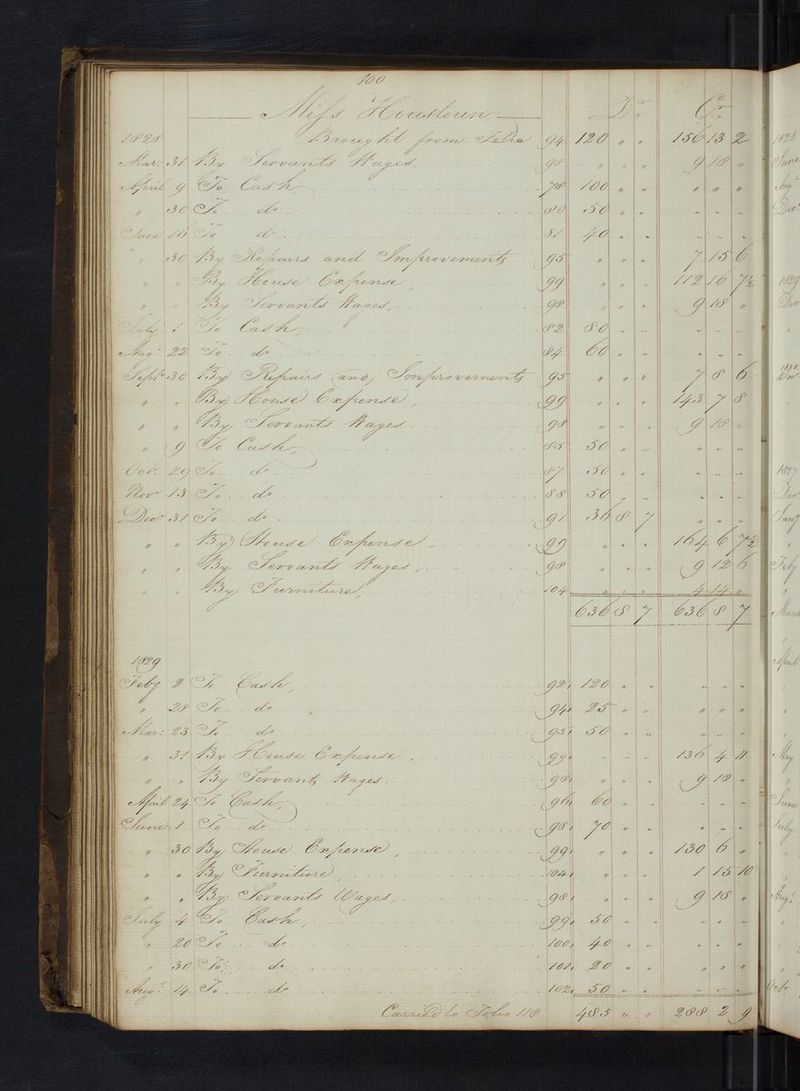 100
Miss Houstoun Dr Cr
1828 Brought from Folio 94 120 " " 156 13 2
Mar: 31 By Servants Wages 98 " " " 9 18 "
April 9 To Cash 78 100 " " " " "
" 30 To do 80 50 " " " " "
June 16 To do 81 40 " " " " "
" 30 By Repairs and Improvements 95 " " " 7 15 6
" " By House Expense 99 " " " 112 16 7½
" " By Servants Wages 98 " " " 9 18 "
July 1 To Cash 82 80 " " " " "
Augt 22 To do 84 60 " " " " "
Septr 30 By Repairs and Improvements 95 " " " 7 8 6
" " By House Expense 99 " " " 143 7 8
" " By Servants Wages 98 " " " 9 18 "
" 9 To Cash 85 50 " " " " "
Octr 29 To do 87 50 " " " " "
Novr 13 To do 88 50 " " " " "
Decr 31 To do 91 36 8 7 " " "
" " By House Expense 99 " " " 164 6 7½
" " By Servants Wages 98 " " " 9 12 6
" " By Furniture 104 " " " 4 14 "
636 8 7 636 8 7
1829
Feby 2 To Cash 92 120 " " " " "
" 28 To do 94 25 " " " " "
Mar: 23 To do 95 50 " " " " "
" 31 By House Expense 99 " " " 136 4 11
" " By Servants Wages 98 " " " 9 18 "
April 24 To Cash 96 60 " " " " "
June 1 To do 98 70 " " " " "
" 30 By House Expense 99 " " " 130 6 "
" " By Furniture 104 " " " 1 15 10
" " By Servants Wages 98 " " " 9 18 "
July 4 To Cash 99 50 " " " " "
" 20 To do 100 40 " " " " "
" 30 To do 101 20 " " " " "
Augt 14 To do 102 50 " " " " "
Carried to Folio 118 485 " " 288 2 9